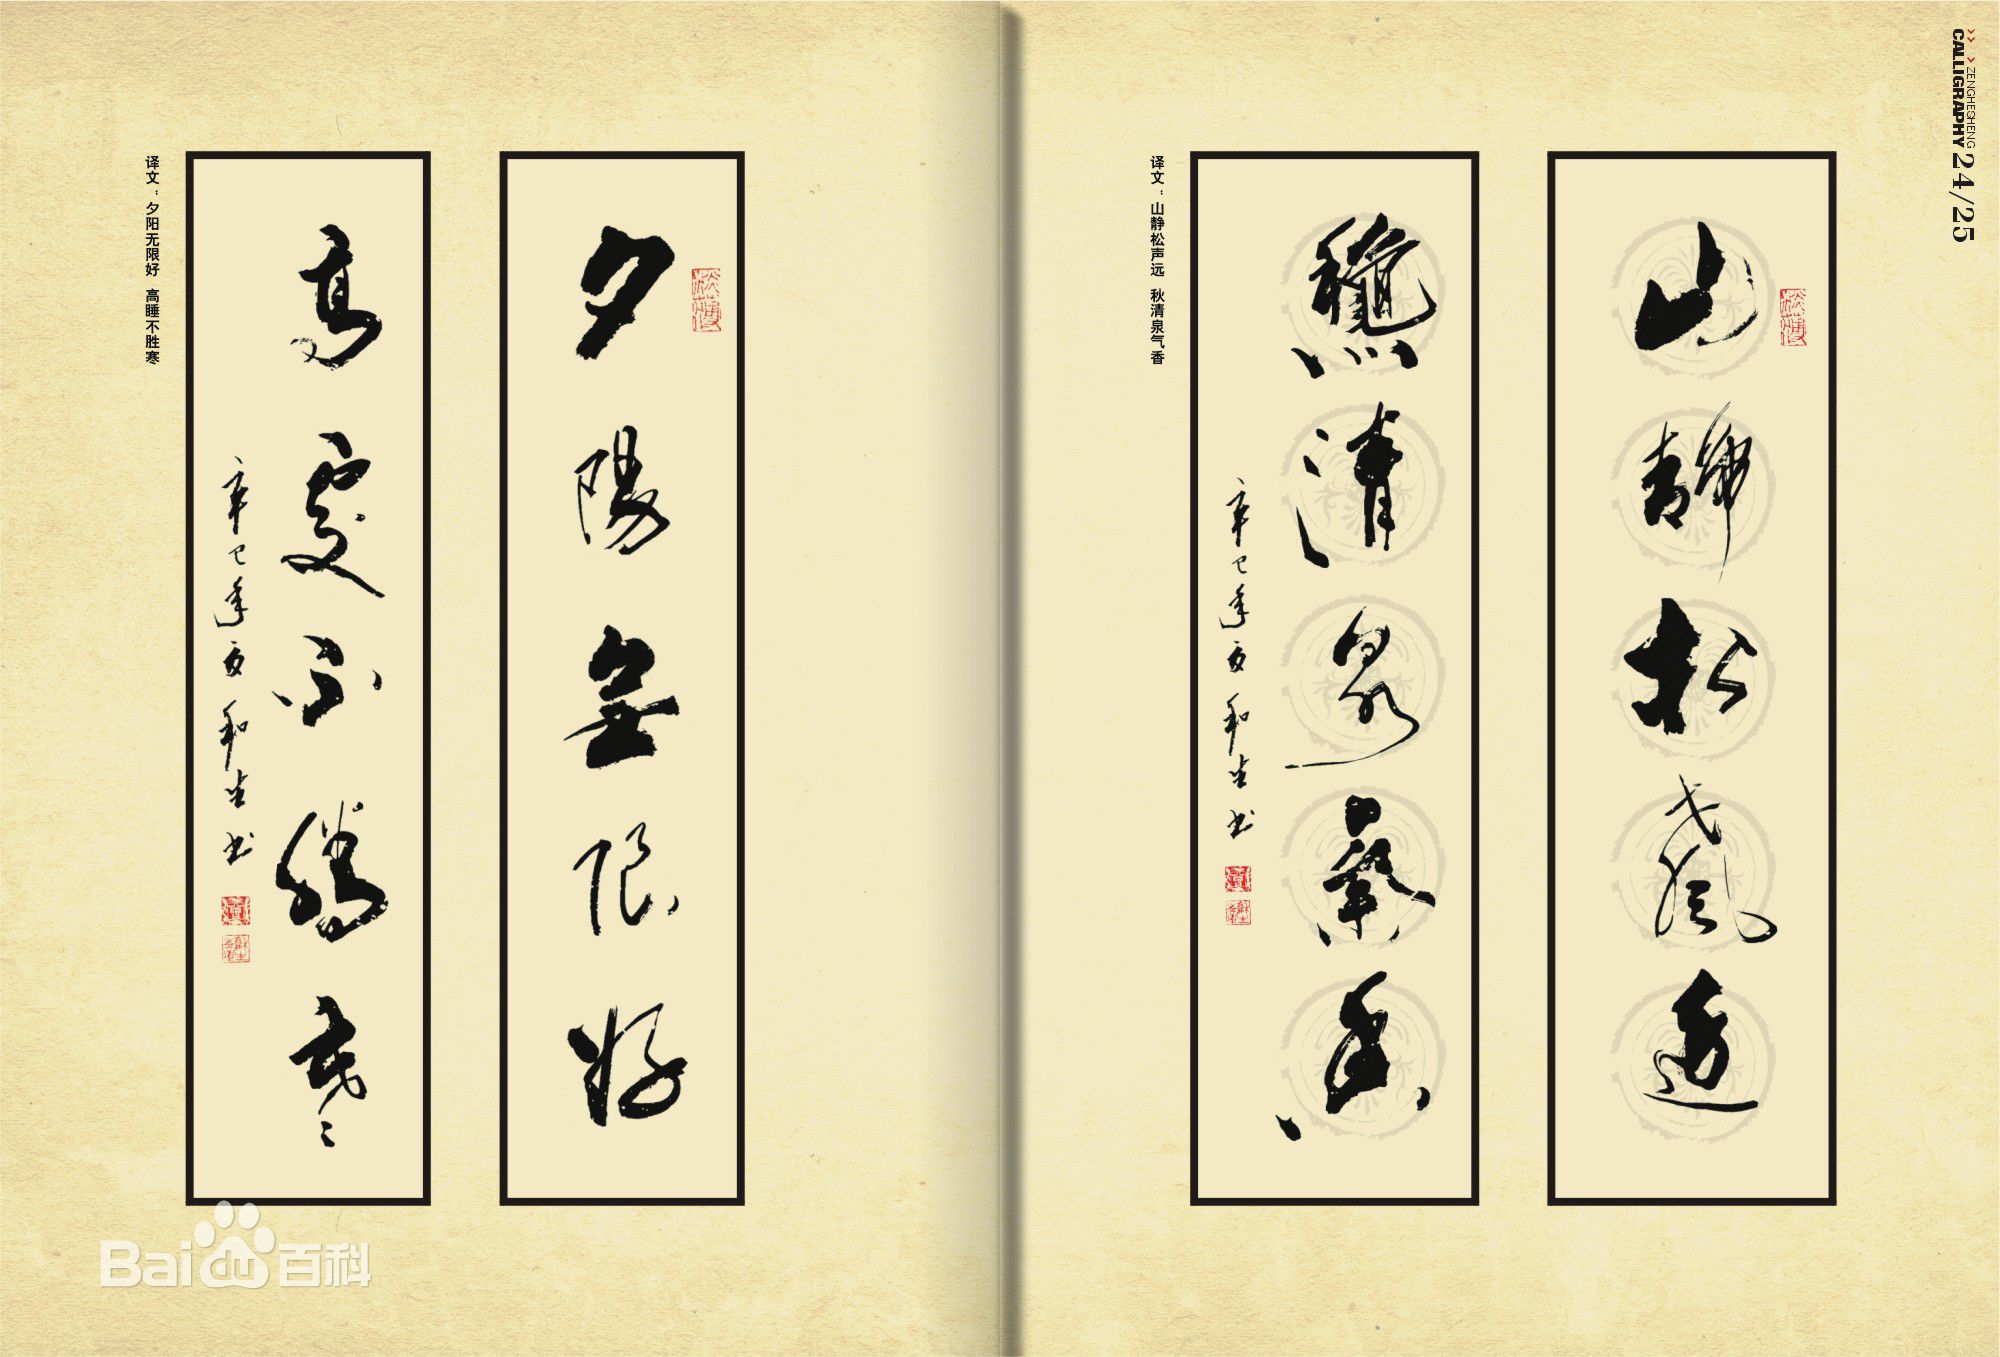 ZENGHESHENG
CALLIGRAPHY 24/25
山靜松聲遠
龝清泉氣香
辛巳年夏和生书
译文：山静松声远 秋清泉气香
夕陽無限好
高處不勝寒
辛巳年夏和生书
译文：夕阳无限好 高睡不胜寒
Bai百科